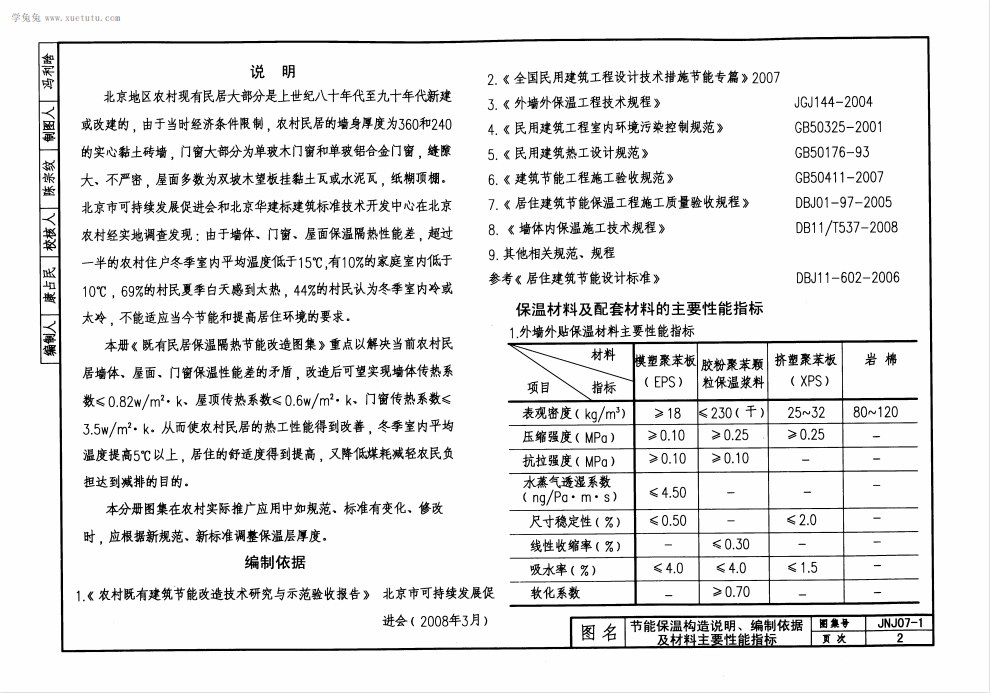 学兔兔 www.xuetutu.com
冯利晗
制图人
陈宗纹
校核人
康占民
编制人
说 明
北京地区农村现有民居大部分是上世纪八十年代至九十年代新建
或改建的，由于当时经济条件限制，农村民居的墙身厚度为360和240
的实心黏土砖墙，门窗大部分为单玻木门窗和单玻铝合金门窗，缝隙
大、不严密，屋面多数为双坡木望板挂黏土瓦或水泥瓦，纸糊顶棚。
北京市可持续发展促进会和北京华建标建筑标准技术开发中心在北京
农村经实地调查发现：由于墙体、门窗、屋面保温隔热性能差，超过
一半的农村住户冬季室内平均温度低于15℃,有10%的家庭室内低于
10℃，69%的村民夏季白天感到太热，44%的村民认为冬季室内冷或
太冷，不能适应当今节能和提高居住环境的要求。
本册《既有民居保温隔热节能改造图集》重点以解决当前农村民
居墙体、屋面、门窗保温性能差的矛盾，改造后可望实现墙体传热系
数≤0.82w/m²·k、屋顶传热系数≤0.6w/m²·k、门窗传热系数≤
3.5w/m²·k。从而使农村民居的热工性能得到改善，冬季室内平均
温度提高5℃以上，居住的舒适度得到提高，又降低煤耗减轻农民负
担达到减排的目的。
本分册图集在农村实际推广应用中如规范、标准有变化、修改
时，应根据新规范、新标准调整保温层厚度。
编制依据
1.《农村既有建筑节能改造技术研究与示范验收报告》 北京市可持续发展促
进会（2008年3月）
2.《全国民用建筑工程设计技术措施节能专篇》2007
3.《外墙外保温工程技术规程》 JGJ144-2004
4.《民用建筑工程室内环境污染控制规范》 GB50325-2001
5.《民用建筑热工设计规范》 GB50176-93
6.《建筑节能工程施工验收规范》 GB50411-2007
7.《居住建筑节能保温工程施工质量验收规程》 DBJ01-97-2005
8.《墙体内保温施工技术规程》 DB11/T537-2008
9.其他相关规范、规程
参考《居住建筑节能设计标准》 DBJ11-602-2006
保温材料及配套材料的主要性能指标
1.外墙外贴保温材料主要性能指标
材料 项目 指标 模塑聚苯板（EPS） 胶粉聚苯颗粒保温浆料 挤塑聚苯板（XPS） 岩 棉
表观密度（kg/m³） ≥18 ≤230（干） 25~32 80~120
压缩强度（MPa） ≥0.10 ≥0.25 ≥0.25 －
抗拉强度（MPa） ≥0.10 ≥0.10 － －
水蒸气透湿系数（ng/Pa·m·s） ≤4.50 － － －
尺寸稳定性（%） ≤0.50 － ≤2.0 －
线性收缩率（%） － ≤0.30 － －
吸水率（%） ≤4.0 ≤4.0 ≤1.5 －
软化系数 － ≥0.70 － －
图名 节能保温构造说明、编制依据
及材料主要性能指标
图集号 JNJ07-1
页 次 2